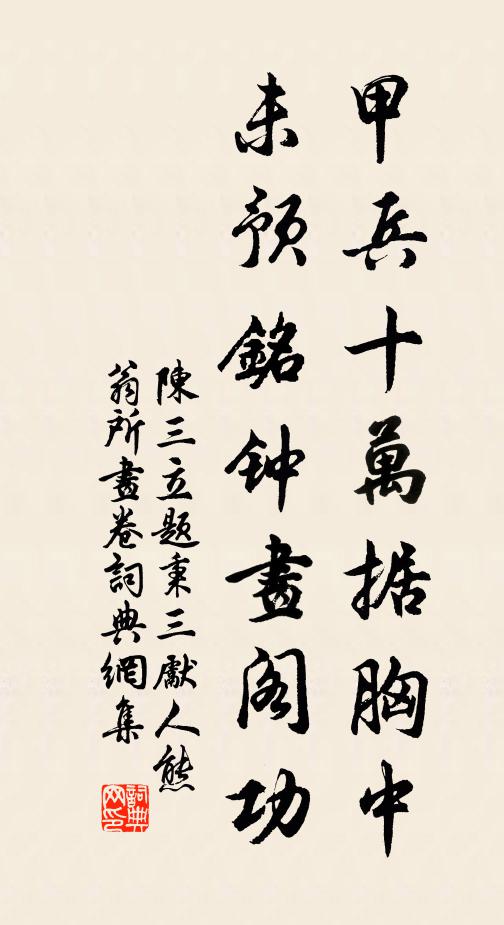 甲兵十萬据胸中
未預銘钟畫阁功
陳三立题秉三獻人熊
翁所畫卷詞典網集
詞典网印